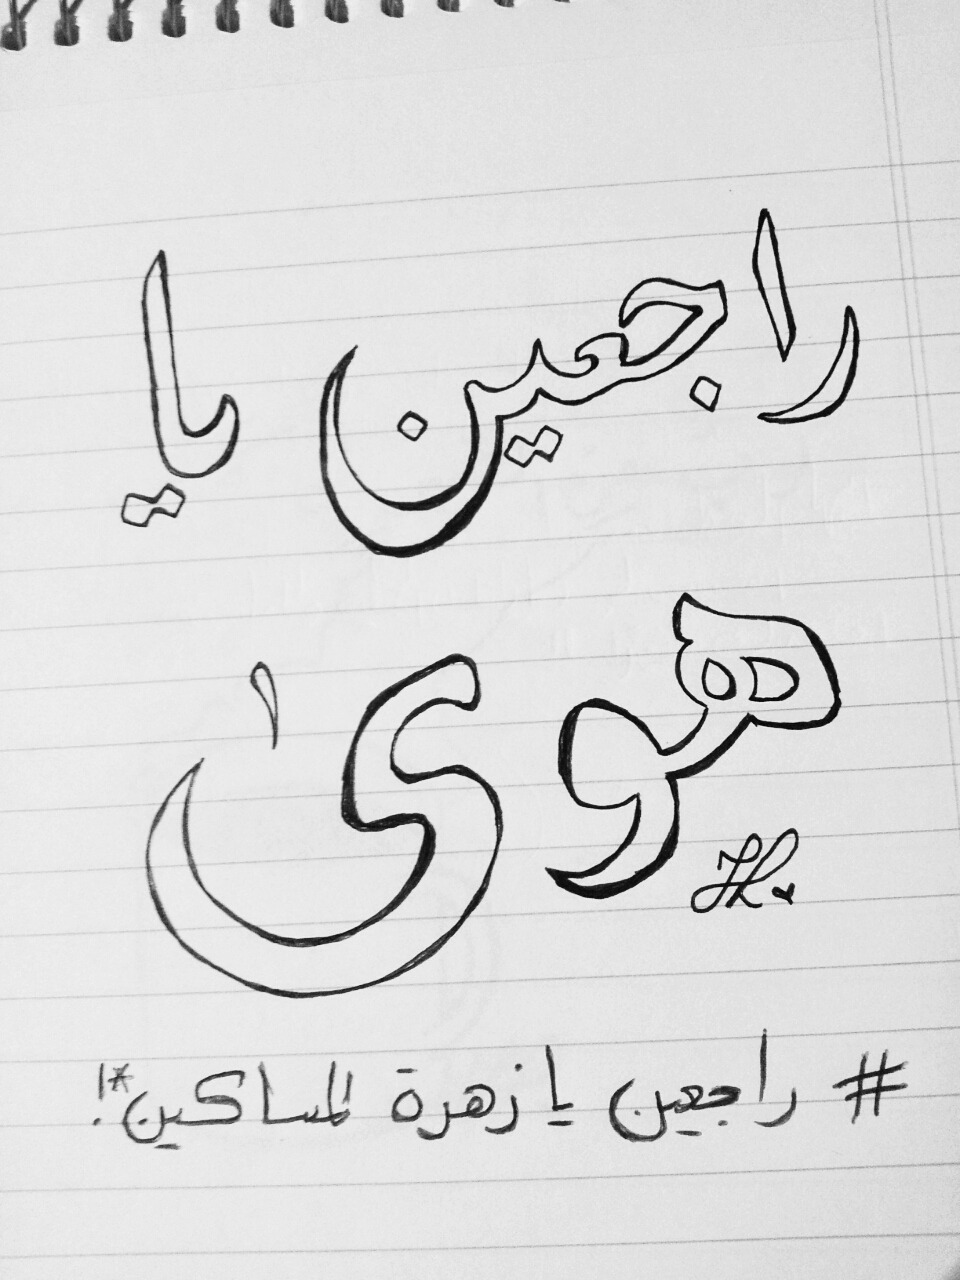 راجعين يا
هوىٰ
# راجعين يا زهرة المساكين*!